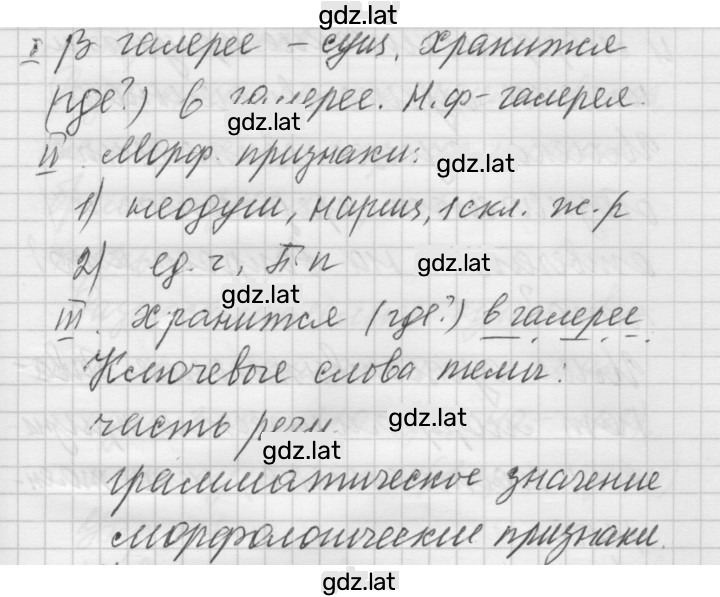 gdz.lat
I В галерее – сущ. хранится
(где?) в галерее. Н.ф – галерея.
gdz.lat
II. Морф. признаки:
gdz.lat
1) неодуш, нариц, 1 скл. ж.р
2) ед. ч, П. п
gdz.lat
gdz.lat
III. Хранится (где?) в галерее.
Ключевые слова темы:
часть речи
gdz.lat
gdz.lat
грамматическое значение
морфологические признаки.
gdz.lat